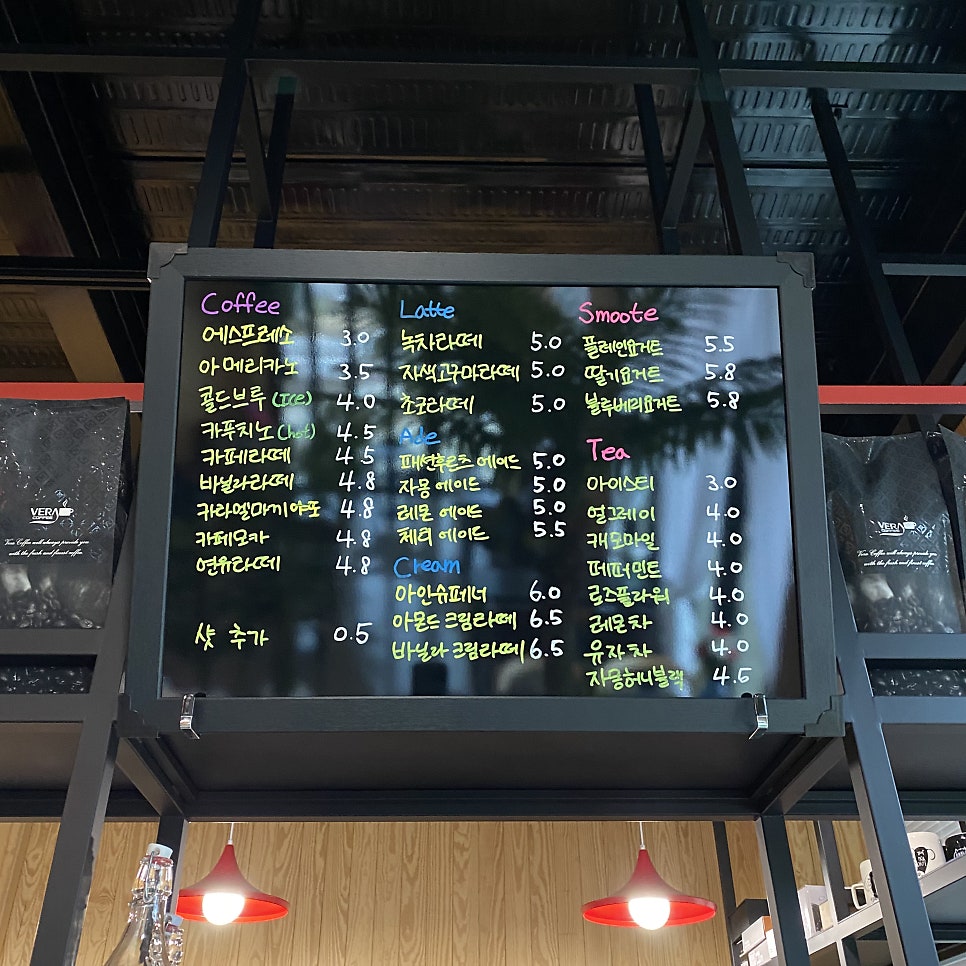 Coffee
에스프레소 3.0
아메리카노 3.5
콜드브루 (Ice) 4.0
카푸치노 (hot) 4.5
카페라떼 4.5
바닐라라떼 4.8
카라멜마끼야또 4.8
카페모카 4.8
연유라떼 4.8
샷 추가 0.5
Latte
녹차라떼 5.0
자색고구마라떼 5.0
초코라떼 5.0
Ade
패션후르츠 에이드 5.0
자몽 에이드 5.0
레몬 에이드 5.0
체리 에이드 5.5
Cream
아인슈페너 6.0
아몬드 크림라떼 6.5
바닐라 크림라떼 6.5
Smoote
플레인요거트 5.5
딸기요거트 5.8
블루베리요거트 5.8
Tea
아이스티 3.0
얼그레이 4.0
캐모마일 4.0
페퍼민트 4.0
로즈플라워 4.0
레몬차 4.0
유자차 4.0
자몽허니블랙 4.5
VERA
COFFEE
Vera Coffee will always provide you
with the fresh and finest coffee.
VERA
COFFEE
Vera Coffee will always provide you
with the fresh and finest coffee.